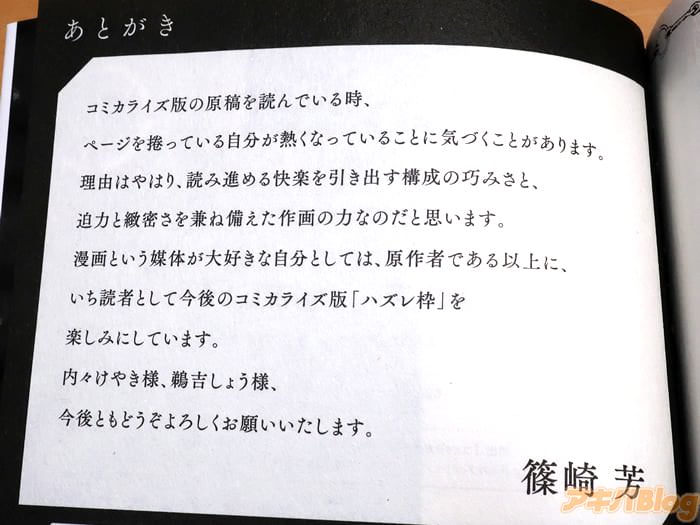 あとがき
コミカライズ版の原稿を読んでいる時、
ページを捲っている自分が熱くなっていることに気づくことがあります。
理由はやはり、読み進める快楽を引き出す構成の巧みさと、
迫力と緻密さを兼ね備えた作画の力なのだと思います。
漫画という媒体が大好きな自分としては、原作者である以上に、
いち読者として今後のコミカライズ版「ハズレ枠」を
楽しみにしています。
内々けやき様、鵜吉しょう様、
今後ともどうぞよろしくお願いいたします。
篠崎 芳
アキバBlog